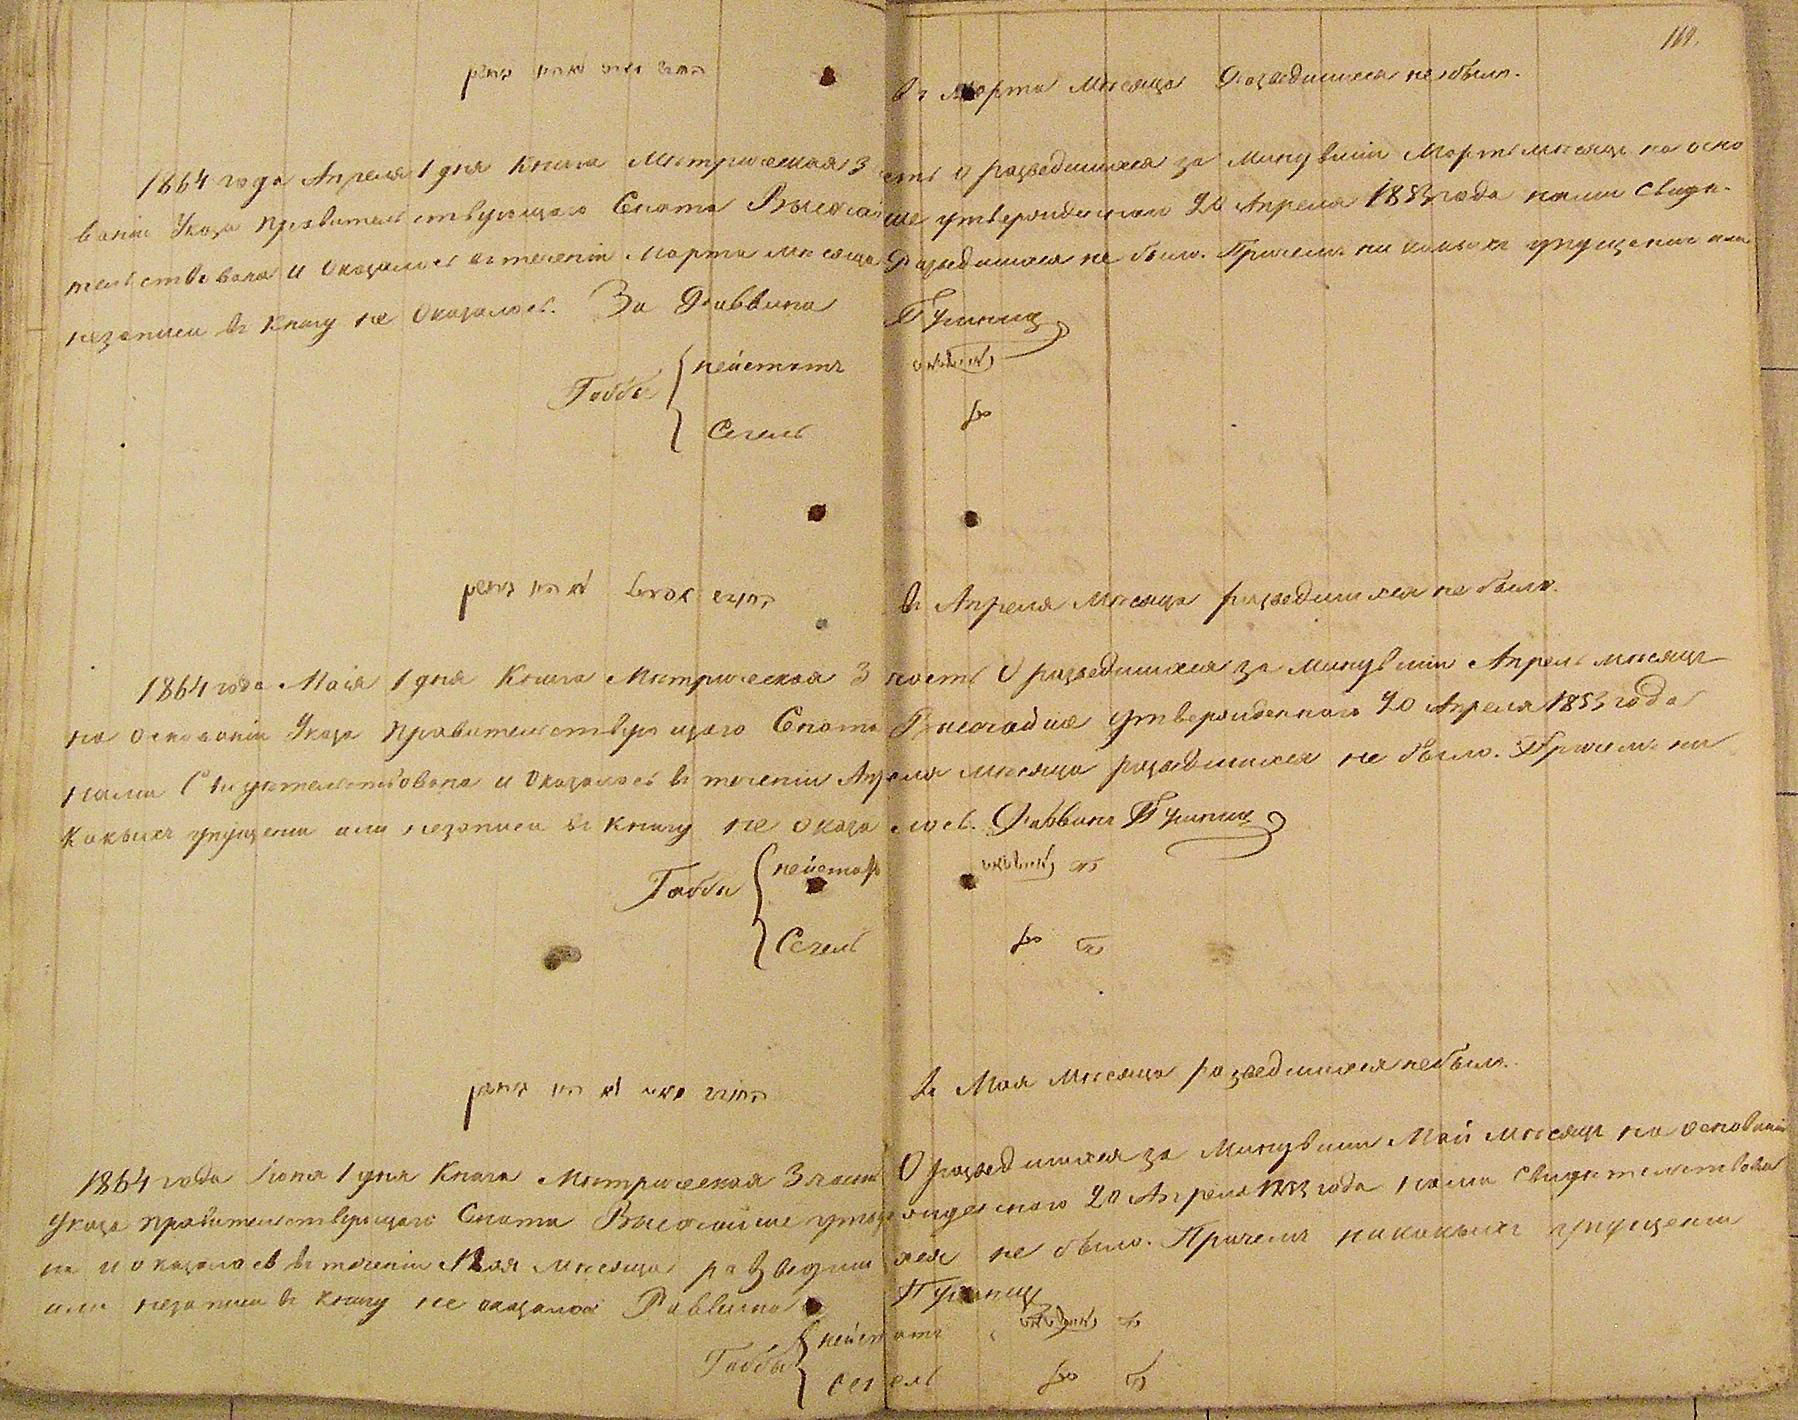 119.
въ Марта Мѣсяца Разведшихся не было.
1864 года Апреля 1 дня Книга Метрическая 3 часть О разведшихся за Минувшій Мартъ мѣсяцъ на осно
ваніи Указа Правительствующаго Сената Высочайше утвержденнаго 20 Апреля 1853 года нами Свиде-
тельствована и Оказалось въ теченіи Марта мѣсяца Разведшихся не было. Причемъ ни какихъ упущеніи или
незаписи въ Книгу не Оказалось. За Раввина Гурвицъ
Габбаи
Нейштатъ
Сегель
въ Апреля Мѣсяца разведшихся не было.
1864 года Маія 1 дня Книга Метрическая 3 часть О разведшихся за минувшіи Апрель мѣсяцъ
на основаніи Указа Правительствующаго Сената Высочайше утвержденнаго 20 Апреля 1853 года
нами Свидетельствована и Оказалось въ теченіи Апреля мѣсяца разведшихся не было. Причемъ ни
какихъ упущеніи или незаписи въ книгу не оказалось. Раввинъ Гурвицъ
Габбаи
Сегель
въ Мая Мѣсяца разведшихся не было.
1864 года Іюня 1 дня Книга Метрическая 3 часть О разведшихся за Минувшіи Май мѣсяцъ на основаніи
Указа Правительствующаго Сената Высочайше утвержденнаго 20 Апреля 1853 года нами Свидетельствова
на и оказалось въ теченіи Мая мѣсяца разведшихся не было. Причемъ никакихъ упущеніи
или незаписи въ книгу не оказалось Раввинъ Гурвицъ
Габбаи
Нейштатъ
Сегель